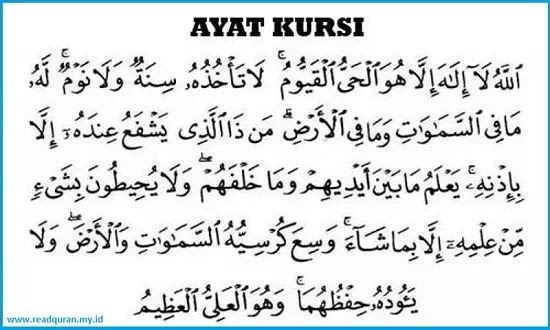 AYAT KURSI
ٱللَّهُ لَآ إِلَـٰهَ إِلَّا هُوَ ٱلْحَىُّ ٱلْقَيُّومُ ۚ لَا تَأْخُذُهُۥ سِنَةٌ وَلَا نَوْمٌ ۚ لَّهُۥ
مَا فِى ٱلسَّمَـٰوَٰتِ وَمَا فِى ٱلْأَرْضِ ۗ مَن ذَا ٱلَّذِى يَشْفَعُ عِندَهُۥٓ إِلَّا
بِإِذْنِهِۦ ۚ يَعْلَمُ مَا بَيْنَ أَيْدِيهِمْ وَمَا خَلْفَهُمْ ۖ وَلَا يُحِيطُونَ بِشَىْءٍ
مِّنْ عِلْمِهِۦٓ إِلَّا بِمَا شَآءَ ۚ وَسِعَ كُرْسِيُّهُ ٱلسَّمَـٰوَٰتِ وَٱلْأَرْضَ ۖ وَلَا
يَـُٔودُهُۥ حِفْظُهُمَا ۚ وَهُوَ ٱلْعَلِىُّ ٱلْعَظِيمُ
www.readquran.my.id